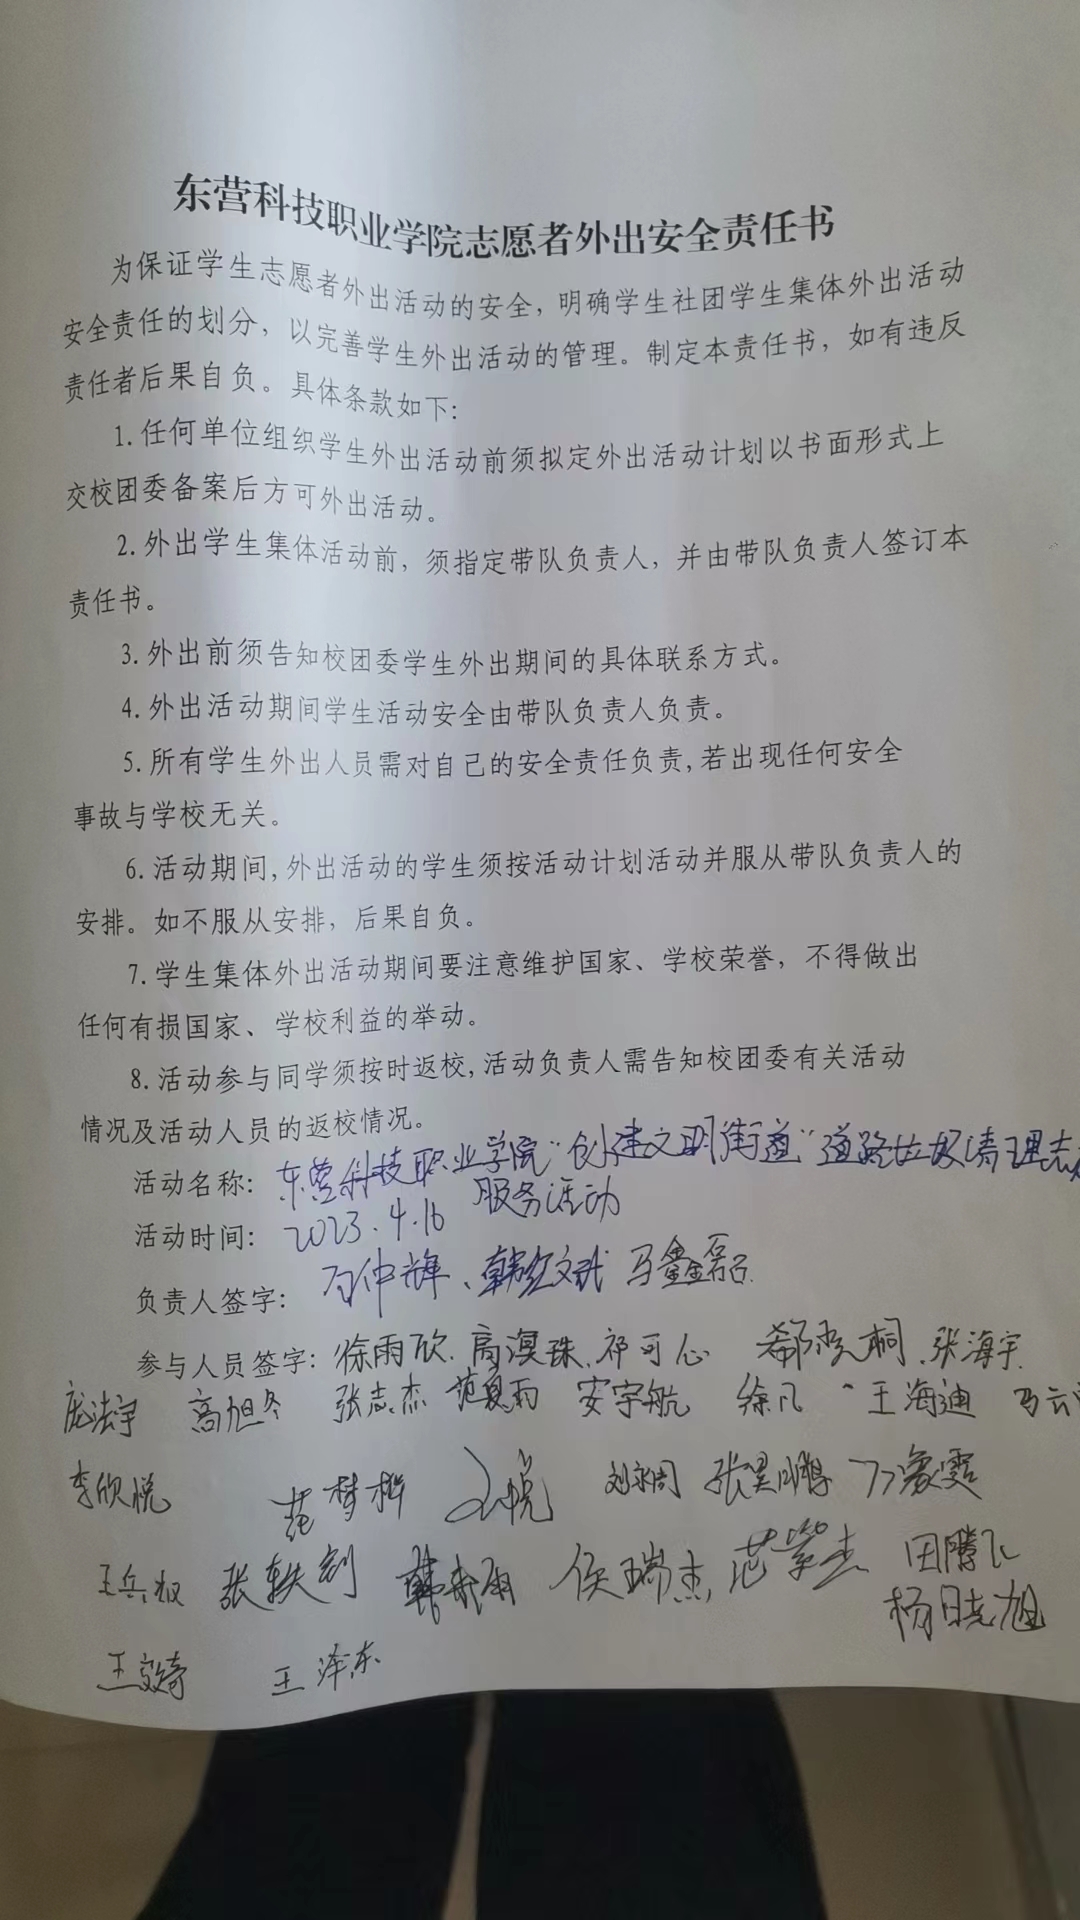 东营科技职业学院志愿者外出安全责任书
为保证学生志愿者外出活动的安全，明确学生社团学生集体外出活动
安全责任的划分，以完善学生外出活动的管理。制定本责任书，如有违反
责任者后果自负。具体条款如下：
1.任何单位组织学生外出活动前须拟定外出活动计划以书面形式上
交校团委备案后方可外出活动。
2.外出学生集体活动前，须指定带队负责人，并由带队负责人签订本
责任书。
3.外出前须告知校团委学生外出期间的具体联系方式。
4.外出活动期间学生活动安全由带队负责人负责。
5.所有学生外出人员需对自己的安全责任负责,若出现任何安全
事故与学校无关。
6.活动期间,外出活动的学生须按活动计划活动并服从带队负责人的
安排。如不服从安排，后果自负。
7.学生集体外出活动期间要注意维护国家、学校荣誉，不得做出
任何有损国家、学校利益的举动。
8.活动参与同学须按时返校,活动负责人需告知校团委有关活动
情况及活动人员的返校情况。
活动名称：东营科技职业学院“创建文明街道”道路垃圾清理志
服务活动
活动时间：2023.4.16
负责人签字：石仲辉、韩红文武 马鑫磊
参与人员签字：徐雨欣.高淏珠、祁可心 郗秀桐、张海宇
庞法宇 高旭冬 张志杰 范夏雨 安宇航 徐凡 王海迪 马云
李欣悦 范梦桦 刘永周 张昊鹏
王兵权 张轶剑 侯瑞杰 范紫杰 田腾飞
杨晓旭
王文奇 王泽东